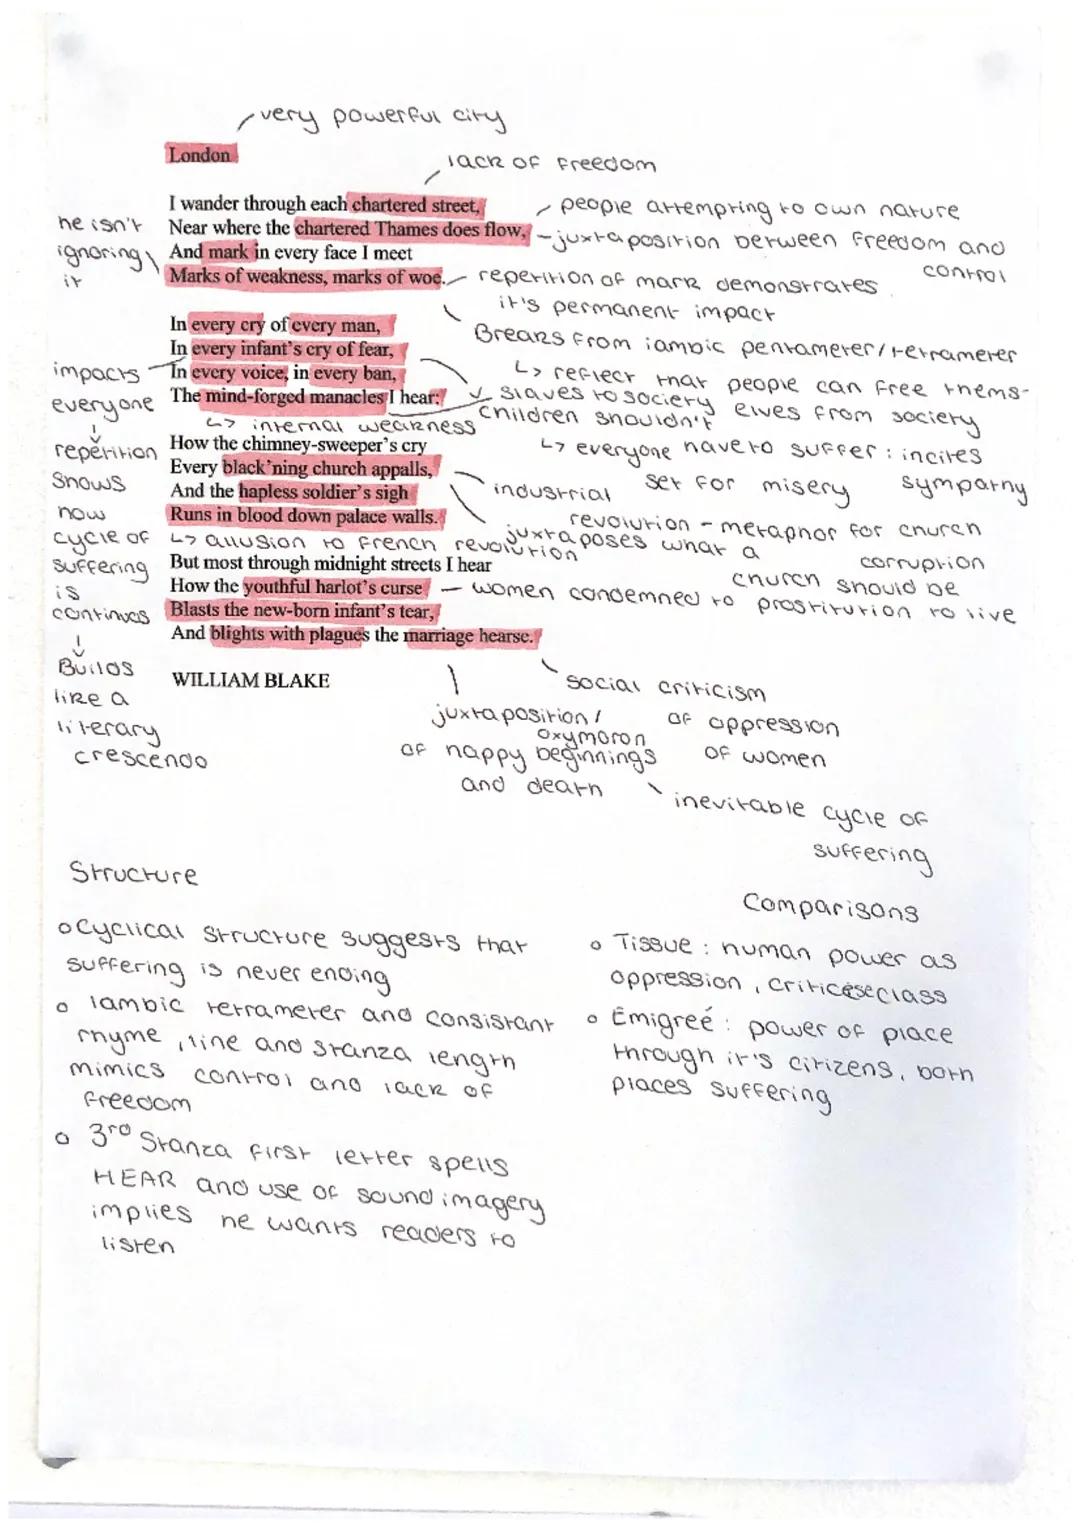 very powerful city
London
lack of freedom
I wander through each chartered street,
people attempting to own nature
Near where the chartered Thames does flow,
juxtaposition between freedom and control
he isn't ignoring it
And mark in every face I meet
Marks of weakness, marks of woe.
repetition of mark demonstrates
it's permanent impact
Breaks from iambic pentameter/tetrameter
↳ reflect that people can free thems-
elves from society
In every cry of every man,
In every infant's cry of fear,
In every voice, in every ban,
The mind-forged manacles I hear:
slaves to society
children shouldn't have to suffer : incites sympathy
↳ internal weakness
↳ everyone
set for misery
impacts
everyone
repetition
shows
how
cycle of
suffering
is
continues
Builds
like a
literary
crescendo
How the chimney-sweeper's cry
Every black'ning church appalls,
And the hapless soldier's sigh
Runs in blood down palace walls.
industrial
revolution - metaphor for church
corruption
juxtaposes what a
church should be
↳ allusion to french revolution
But most through midnight streets I hear
How the youthful harlot's curse
women condemned to prostitution to live
Blasts the new-born infant's tear,
And blights with plagues the marriage hearse.
WILLIAM BLAKE
social criticism
of oppression
of women
juxtaposition/
oxymoron
of happy beginnings
and death
inevitable cycle of
suffering
Structure
o Cyclical structure suggests that
suffering is never ending
o Iambic tetrameter and consistant
rhyme, line and stanza length
mimics control and lack of
freedom
o 3rd Stanza first letter spells
HEAR and use of sound imagery
implies he wants readers to
listen
Comparisons
o Tissue : human power as
oppression, criticese class
o Émigreé : power of place
through it's citizens, both
places suffering